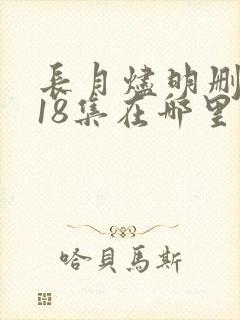 長月燼明删
18集在哪里
哈貝馬斯